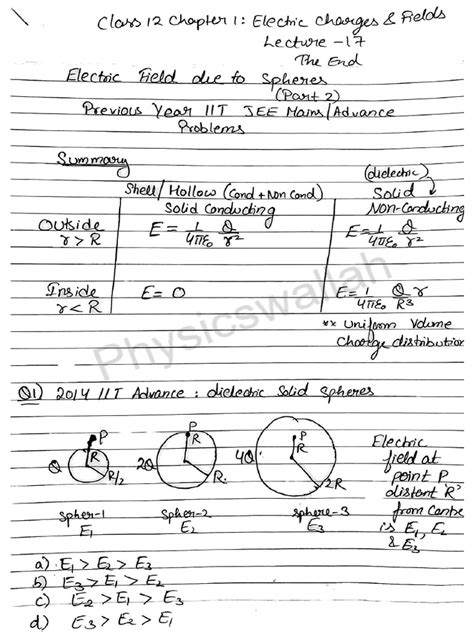 Class 12 Chapter 1: Electric Charges & Fields
Lecture -17
The End
Electric Field due to Spheres
(Part 2)
Previous Year IIT JEE Mains/Advance
Problems
Summary
Shell/Hollow (Cond + Non Cond)
Solid Conducting
(dielectric)
Solid
NON-Conducting
Outside
r > R
E = 1/4πε₀ Q/r²
E = 1/4πε₀ Q/r²
Inside
r < R
E = 0
E = 1/4πε₀ Q/R³ r
** Uniform Volume
Charge distribution
Physicswallah
Q1) 2014 IIT Advance : dielectric Solid Spheres
P
R
Q
R/2
spher-1
E₁
P
R
2Q
R
spher-2
E₂
P
R
4Q
2R
sphere-3
E₃
Electric
field at
point P
distant 'R'
from Centre
is E₁, E₂
& E₃
a) E₁ > E₂ > E₃
b) E₃ > E₁ > E₂
c) E₂ > E₁ > E₃
d) E₃ > E₂ > E₁